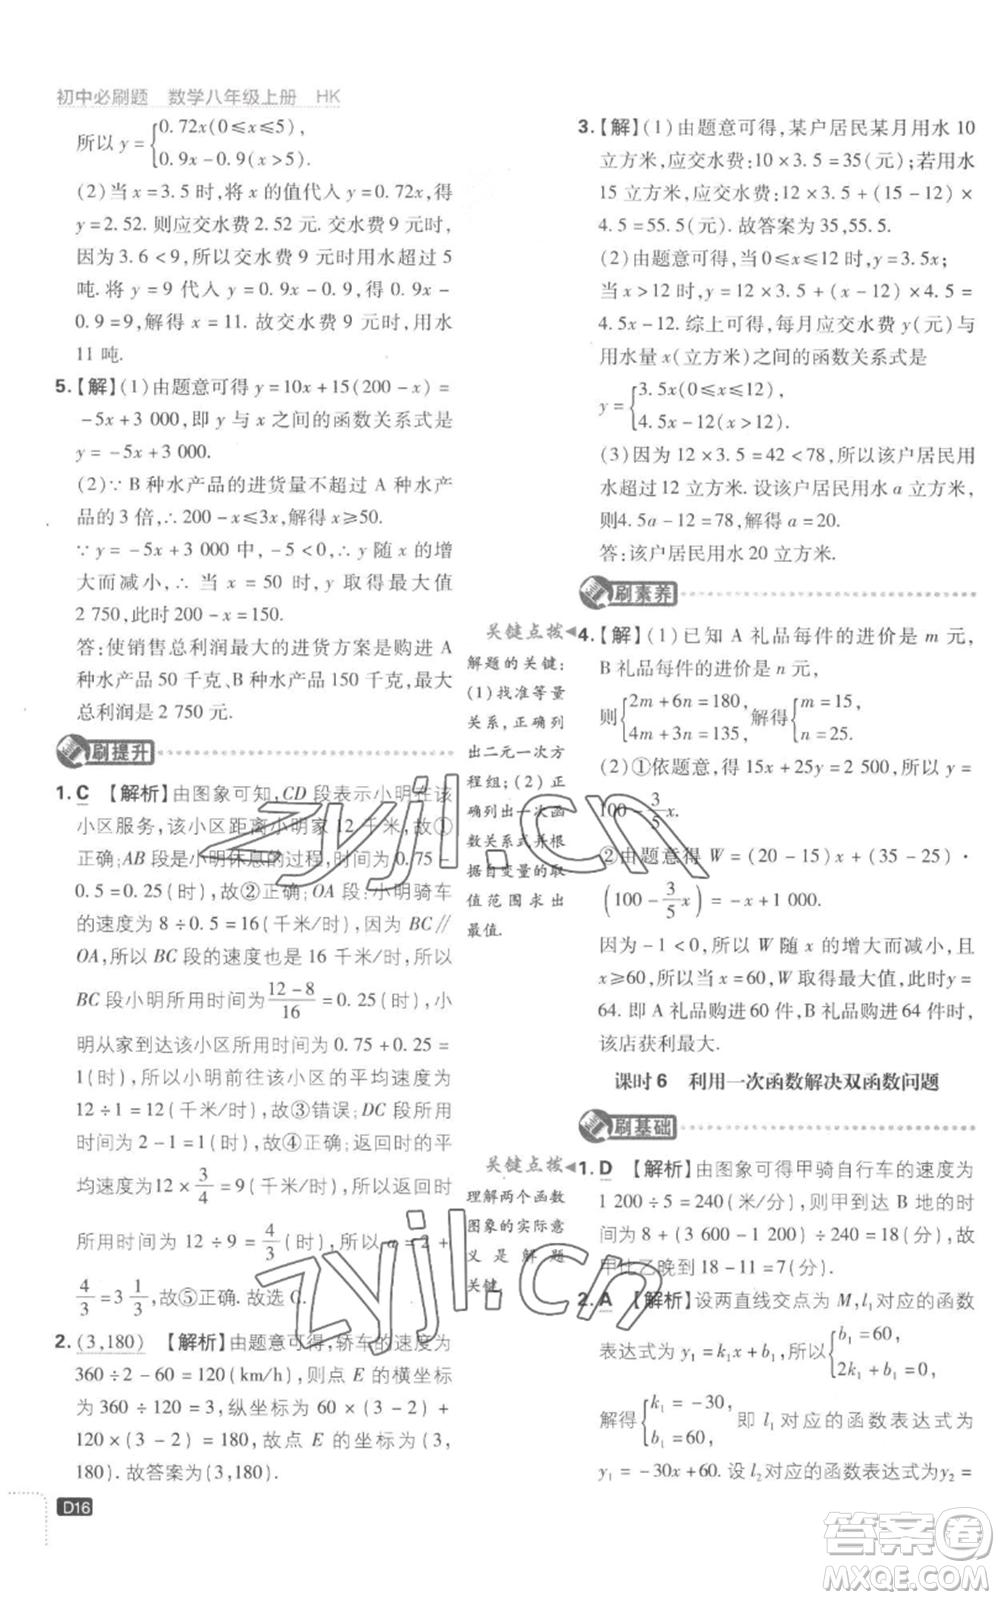 初中必刷题 数学八年级上册 HK
所以 y={0.72x(0≤x≤5),
0.9x-0.9(x>5).
(2)当 x=3.5 时,将 x 的值代入 y=0.72x,得
y=2.52. 则应交水费 2.52 元. 交水费 9 元时,
因为 3.6<9,所以交水费 9 元时用水超过 5
吨. 将 y=9 代入 y=0.9x-0.9,得 0.9x-
0.9=9,解得 x=11. 故交水费 9 元时,用水
11 吨.
5.【解】(1)由题意可得 y=10x+15(200-x)=
-5x+3 000,即 y 与 x 之间的函数关系式是
y=-5x+3 000.
(2)∵B 种水产品的进货量不超过 A 种水产
品的 3 倍,∴200-x≤3x,解得 x≥50.
∵y=-5x+3 000 中,-5<0,∴y 随 x 的增
大而减小,∴当 x=50 时,y 取得最大值
2 750,此时 200-x=150.
答:使销售总利润最大的进货方案是购进 A
种水产品 50 千克、B 种水产品 150 千克,最大
总利润是 2 750 元.
刷提升
1. C 【解析】由图象可知,CD 段表示小明在该
小区服务,该小区距离小明家 12 千米,故①
正确;AB 段是小明休息的过程,时间为 0.75-
0.5=0.25(时),故②正确;OA 段,小明骑车
的速度为 8÷0.5=16(千米/时),因为 BC∥
OA,所以 BC 段的速度也是 16 千米/时,所以
BC 段小明所用时间为 (12-8)/16=0.25(时),小
明从家到达该小区所用时间为 0.75+0.25=
1(时),所以小明前往该小区的平均速度为
12÷1=12(千米/时),故③错误;DC 段所用
时间为 2-1=1(时),故④正确;返回时的平
均速度为12×3/4=9(千米/时),所以返回时
所用时间为 12÷9=4/3(时),所以 a=2+
4/3=3 1/3,故⑤正确. 故选 C.
2. (3,180) 【解析】由题意可得,轿车的速度为
360÷2-60=120(km/h),则点 E 的横坐标为
360÷120=3,纵坐标为 60×(3-2)+
120×(3-2)=180,故点 E 的坐标为(3,
180). 故答案为(3,180).
D16
关键点拨
解题的关键:
(1)找准等量
关系,正确列
出二元一次方
程组;(2)正
确列出一次函
数关系式并根
据自变量的取
值范围求出
最值.
关键点拨
理解两个函数
图象的实际意
义是解题
关键.
3.【解】(1)由题意可得,某户居民某月用水 10
立方米,应交水费:10×3.5=35(元);若用水
15 立方米,应交水费:12×3.5+(15-12)×
4.5=55.5(元). 故答案为 35,55.5.
(2)由题意可得,当 0≤x≤12 时,y=3.5x;
当 x>12 时,y=12×3.5+(x-12)×4.5=
4.5x-12. 综上可得,每月应交水费 y(元)与
用水量 x(立方米)之间的函数关系式是
y={3.5x(0≤x≤12),
4.5x-12(x>12).
(3)因为 12×3.5=42<78,所以该户居民用
水超过 12 立方米. 设该户居民用水 a 立方米,
则4.5a-12=78,解得 a=20.
答:该户居民用水 20 立方米.
刷素养
4.【解】(1)已知 A 礼品每件的进价是 m 元,
B 礼品每件的进价是 n 元,
则{2m+6n=180, 解得{m=15,
4m+3n=135, n=25.
(2)①依题意,得 15x+25y=2 500,所以 y=
100-3/5x.
②由题意得 W=(20-15)x+(35-25)·
(100-3/5x)=-x+1 000.
因为-1<0,所以 W 随 x 的增大而减小,且
x≥60,所以当 x=60 时,W 取得最大值,此时y=
64. 即 A 礼品购进 60 件,B 礼品购进 64 件,
该店获利最大.
课时 6 利用一次函数解决双函数问题
刷基础
1. D 【解析】由图象可得甲骑自行车的速度为
1 200÷5=240(米/分),则甲到达 B 地的时
间为 8+(3 600-1 200)÷240=18(分),故
甲比乙晚到 18-11=7(分).
2. A 【解析】设两直线交点为 M,l₁对应的函数
表达式为 y₁=k₁x+b₁,所以{b₁=60,
2k₁+b₁=0,
解得{k₁=-30, 即 l₁ 对应的函数表达式为
b₁=60,
y₁=-30x+60. 设 l₂对应的函数表达式为 y₂=
zyjl.cn
zyjl.cn
答案圈
MXQE.COM